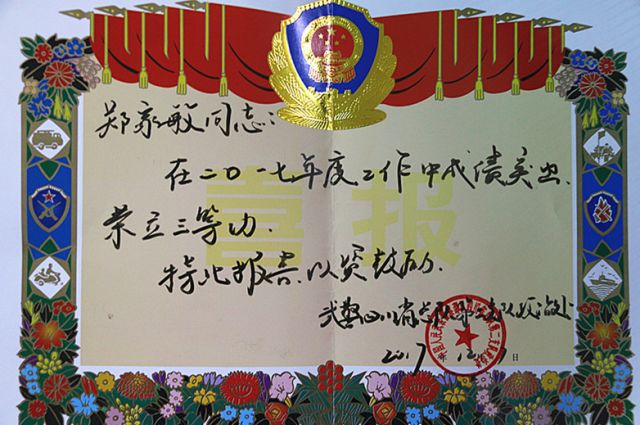 郑家敏同志:
在二〇一七年度工作中成绩突出、
荣立三等功.
特此报喜、以资鼓励.
喜报
武警四川省总队第二支队政治处
2017 12 日